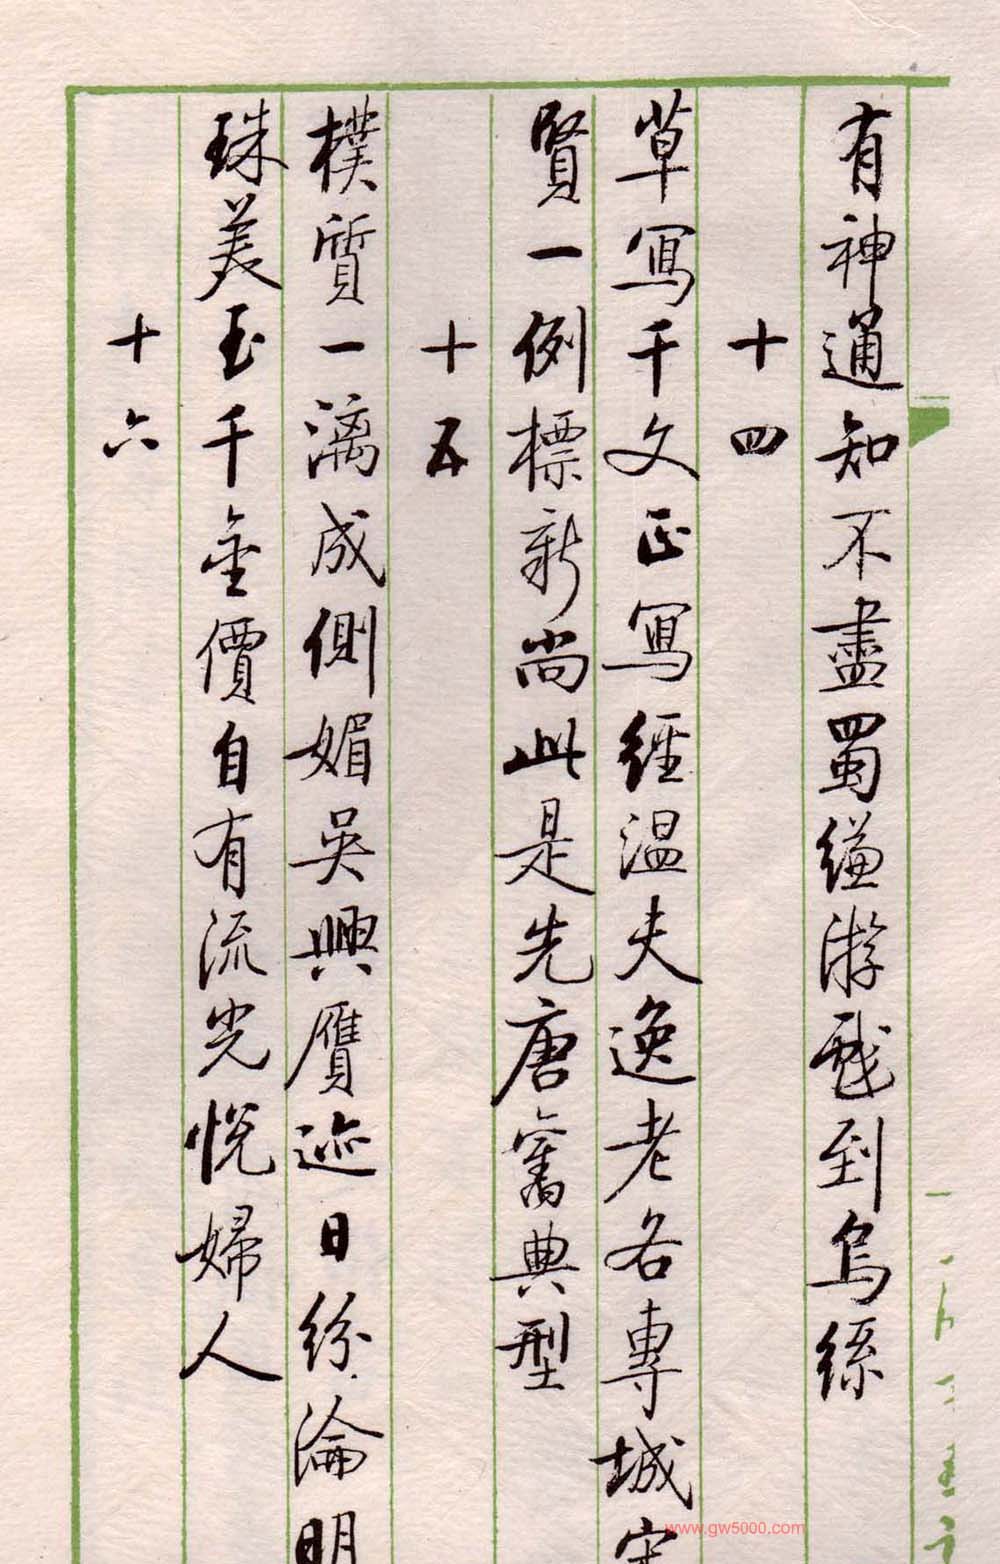 有神通知不盡蜀縑游戲到烏絲
十四
草寫千文正寫經温夫逸老各專城宋
賢一例標新尚此是先唐舊典型
十五
樸質一漓成側媚吳興贋迹日紛淪明
珠美玉千金價自有流光悅婦人
十六
www.gw5000.com